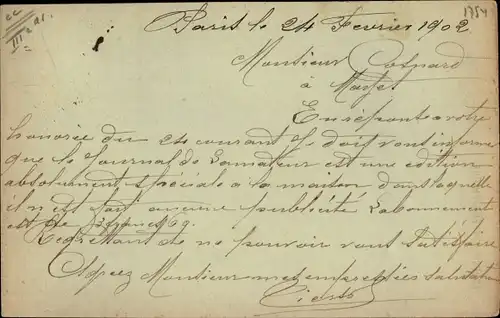 Paris le 24 Fevrier 1902
1754
Monsieur
à Mayet
En réponse a votre
honorée du 24 courant Je doit vous informe
que le Journal de Lamateur est une édition
absolument spéciale a la maison dans laquelle
il n est fait aucune publicité Labonnement
est de
Regrettant de ne pouvoir vous satisfaire
Agreez Monsieur mes empressées salutation